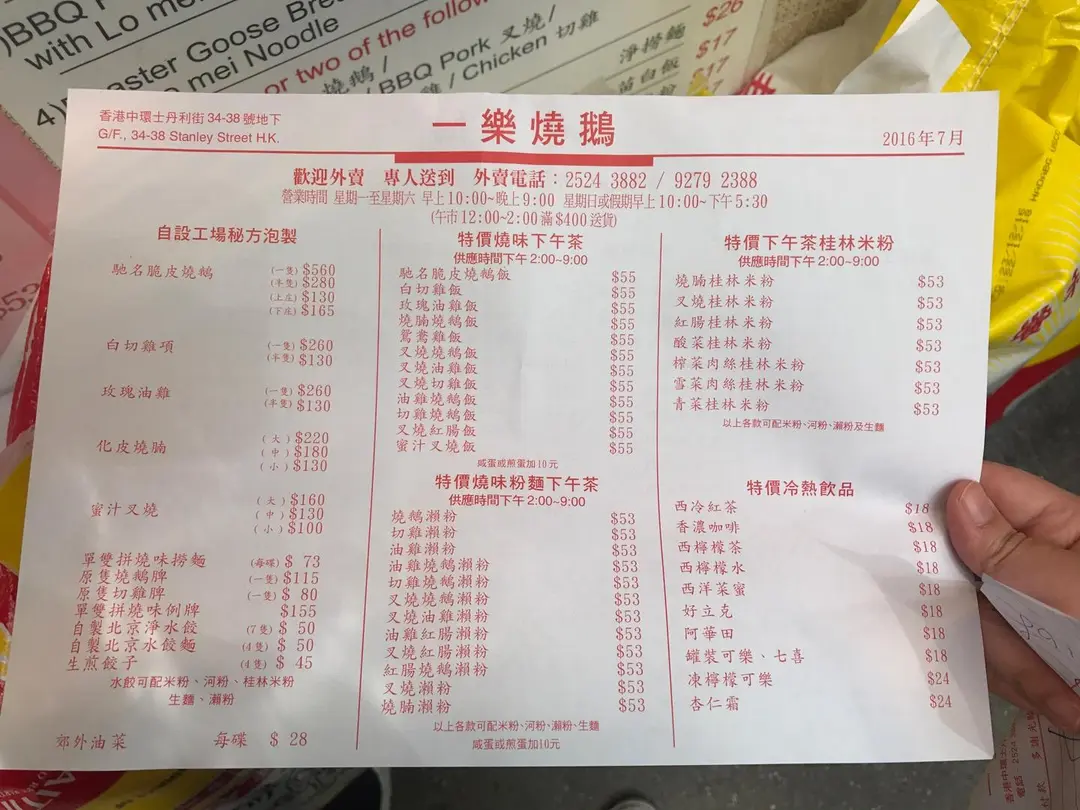 )BBQ P
with Lo mei
4) Roaster Goose Bre
Lo mei Noodle
or two of the follow
燒鵝 /
BBQ Pork 叉燒 /
雞 / Chicken 切雞
淨撈麵
苗白飯
$26
$17
$17
香港中環士丹利街 34-38 號地下
G/F., 34-38 Stanley Street H.K.
一樂燒鵝
2016年7月
歡迎外賣 專人送到 外賣電話：2524 3882 / 9279 2388
營業時間 星期一至星期六 早上10:00~晚上9:00 星期日或假期早上10:00~下午5:30
(午市12:00~2:00滿$400送貨)
自設工場秘方泡製
馳名脆皮燒鵝 (一隻) $560
(半隻) $280
(上庄) $130
(下庄) $165
白切雞項 (一隻) $260
(半隻) $130
玫瑰油雞 (一隻) $260
(半隻) $130
化皮燒腩 (大) $220
(中) $180
(小) $130
蜜汁叉燒 (大) $160
(中) $130
(小) $100
單雙拼燒味撈麵 (每碟) $ 73
原隻燒鵝髀 (一隻) $115
原隻切雞髀 (一隻) $ 80
單雙拼燒味例牌 $155
自製北京淨水餃 (7隻) $ 50
自製北京水餃麵 (4隻) $ 50
生煎餃子 (4隻) $ 45
水餃可配米粉、河粉、桂林米粉
生麵、瀨粉
郊外油菜 每碟 $ 28
特價燒味下午茶
供應時間下午2:00~9:00
馳名脆皮燒鵝飯 $55
白切雞飯 $55
玫瑰油雞飯 $55
燒腩燒鵝飯 $55
鴛鴦雞飯 $55
叉燒燒鵝飯 $55
叉燒油雞飯 $55
叉燒切雞飯 $55
油雞燒鵝飯 $55
切雞燒鵝飯 $55
叉燒紅腸飯 $55
蜜汁叉燒飯 $55
咸蛋或煎蛋加10元
特價燒味粉麵下午茶
供應時間下午2:00~9:00
燒鵝瀨粉 $53
切雞瀨粉 $53
油雞瀨粉 $53
油雞燒鵝瀨粉 $53
切雞燒鵝瀨粉 $53
叉燒燒鵝瀨粉 $53
叉燒油雞瀨粉 $53
油雞紅腸瀨粉 $53
叉燒紅腸瀨粉 $53
紅腸燒鵝瀨粉 $53
叉燒瀨粉 $53
燒腩瀨粉 $53
以上各款可配米粉、河粉、瀨粉、生麵
咸蛋或煎蛋加10元
特價下午茶桂林米粉
供應時間下午2:00~9:00
燒腩桂林米粉 $53
叉燒桂林米粉 $53
紅腸桂林米粉 $53
酸菜桂林米粉 $53
榨菜肉絲桂林米粉 $53
雪菜肉絲桂林米粉 $53
青菜桂林米粉 $53
以上各款可配米粉、河粉、瀨粉及生麵
特價冷熱飲品
西冷紅茶 $18
香濃咖啡 $18
西檸檬茶 $18
西檸檬水 $18
西洋菜蜜 $18
好立克 $18
阿華田 $18
罐裝可樂、七喜 $18
凍檸檬可樂 $24
杏仁霜 $24
香港中環士
電話 2524
多謝光